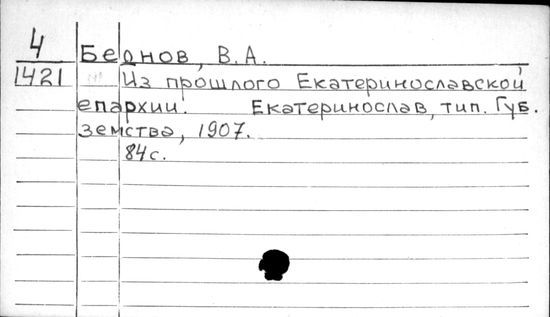 4
1421
Беднов, В.А.
Из прошлого Екатеринославской
епархии. Екатеринослав, тип. Губ.
земства, 1907.
84с.